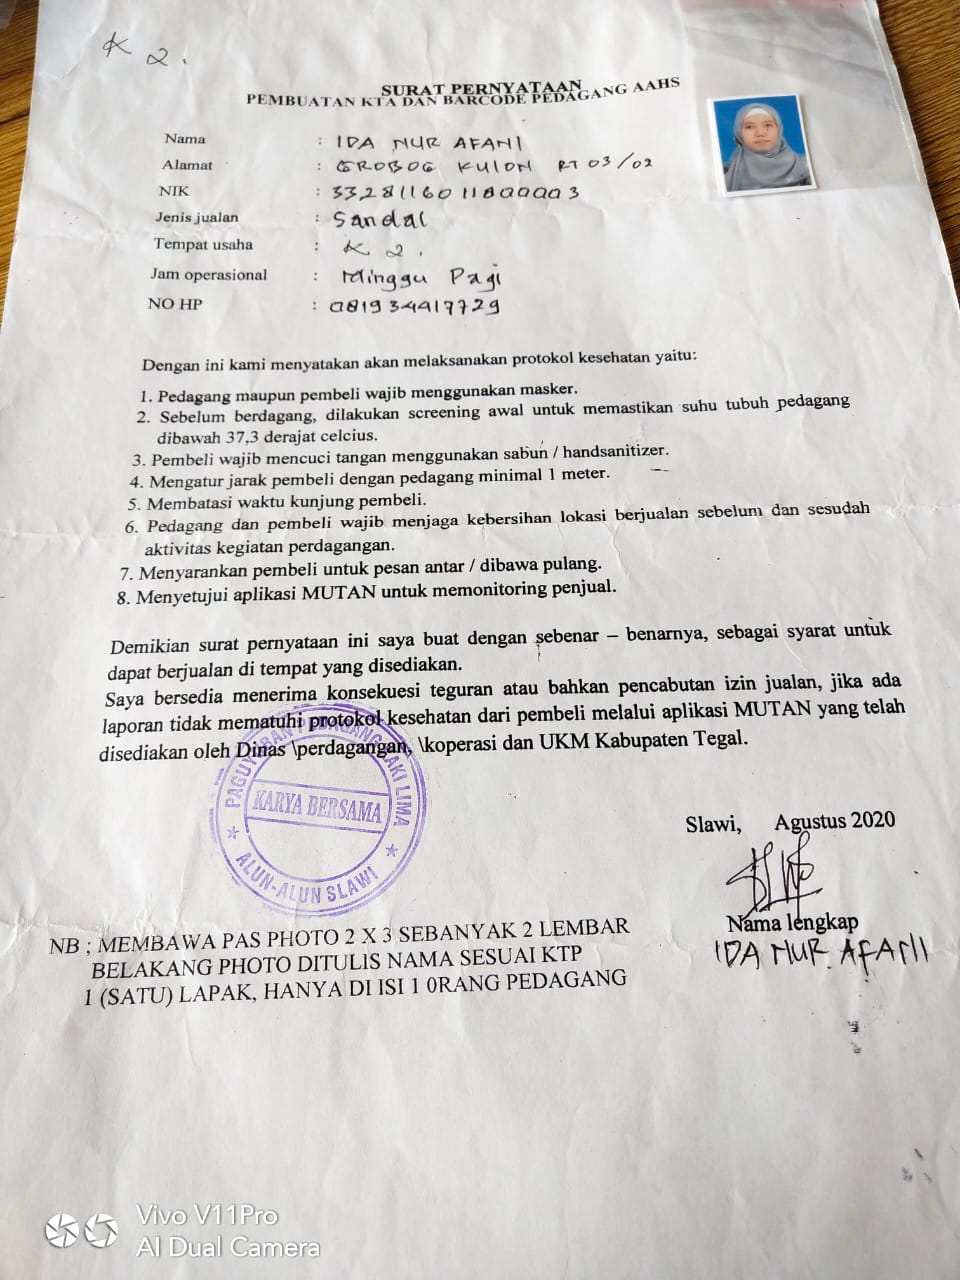 K 2.
SURAT PERNYATAAN
PEMBUATAN KTA DAN BARCODE PEDAGANG AAHS
Nama : IDA NUR AFANI
Alamat : GROBOG KULON RT 03/02
NIK : 3328116011800003
Jenis jualan : Sandal
Tempat usaha : K 2.
Jam operasional : Minggu Pagi
NO HP : 081934417729
Dengan ini kami menyatakan akan melaksanakan protokol kesehatan yaitu:
1. Pedagang maupun pembeli wajib menggunakan masker.
2. Sebelum berdagang, dilakukan screening awal untuk memastikan suhu tubuh pedagang
dibawah 37,3 derajat celcius.
3. Pembeli wajib mencuci tangan menggunakan sabun / handsanitizer.
4. Mengatur jarak pembeli dengan pedagang minimal 1 meter.
5. Membatasi waktu kunjung pembeli.
6. Pedagang dan pembeli wajib menjaga kebersihan lokasi berjualan sebelum dan sesudah
aktivitas kegiatan perdagangan.
7. Menyarankan pembeli untuk pesan antar / dibawa pulang.
8. Menyetujui aplikasi MUTAN untuk memonitoring penjual.
Demikian surat pernyataan ini saya buat dengan sebenar – benarnya, sebagai syarat untuk
dapat berjualan di tempat yang disediakan.
Saya bersedia menerima konsekuesi teguran atau bahkan pencabutan izin jualan, jika ada
laporan tidak mematuhi protokol kesehatan dari pembeli melalui aplikasi MUTAN yang telah
disediakan oleh Dinas \perdagangan, \koperasi dan UKM Kabupaten Tegal.
PAGUYUBAN PEDAGANG KAKI LIMA
KARYA BERSAMA
ALUN-ALUN SLAWI
Slawi, Agustus 2020
Nama lengkap
IDA NUR. AFANI
NB ; MEMBAWA PAS PHOTO 2 X 3 SEBANYAK 2 LEMBAR
BELAKANG PHOTO DITULIS NAMA SESUAI KTP
1 (SATU) LAPAK, HANYA DI ISI 1 0RANG PEDAGANG
Vivo V11Pro
AI Dual Camera